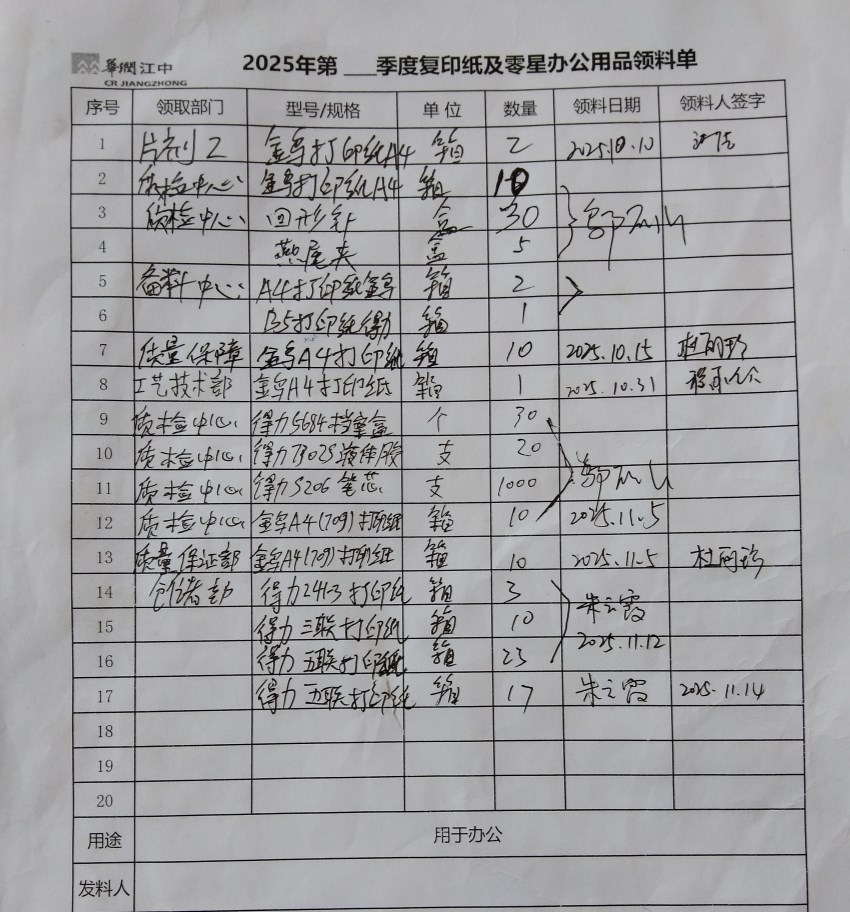 華潤江中
CR JIANGZHONG
2025年第 ___季度复印纸及零星办公用品领料单
序号 领取部门 型号/规格 单位 数量 领料日期 领料人签字
1 片剂2 金鸟打印纸A4 箱 2 2025.10.10
2 质检中心 金鸟打印纸A4 箱 10
3 质检中心 回形针 盒 30
4 燕尾夹 盒 5
5 备料中心 A4打印纸金鸟 箱 2
6 B5打印纸得力 箱 1
7 质量保障 金鸟A4打印纸 箱 10 2025.10.15 杜丽珍
8 工艺技术部 金鸟A4打印纸 箱 1 2025.10.31
9 质检中心 得力5684档案盒 个 30
10 质检中心 得力7302S液体胶 支 20
11 质检中心 得力S206笔芯 支 1000
12 质检中心 金鸟A4(70g)打印纸 箱 10 2025.11.5
13 质量保证部 金鸟A4(70g)打印纸 箱 10 2025.11.5 杜丽珍
14 仓储部 得力241-3打印纸 箱 3 朱云霞
15 得力三联打印纸 箱 10 2025.11.12
16 得力五联打印纸 箱 23
17 得力五联打印纸 箱 17 朱云霞 2025.11.14
18
19
20
用途 用于办公
发料人